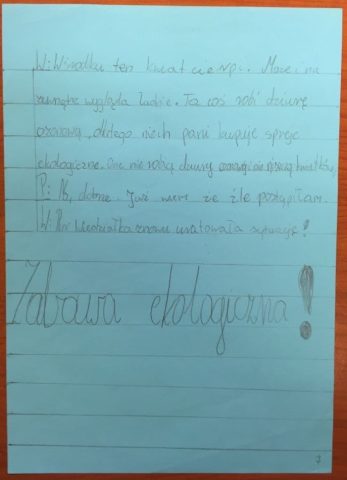 W: W środku ten kwiat cierpi. Może i na
zewnątrz wygląda ładnie. To coś robi dziurę
ozonową, dlatego niech pani kupuje spreje
ekologiczne. One nie robią dziury ozonowej i nie niszczą kwiatków.
P: Ok, dobrze. Już wiem że źle postąpiłam.
W: Pani Wiedziałka znowu uratowała sytuację!
Zabawa ekologiczna!
7